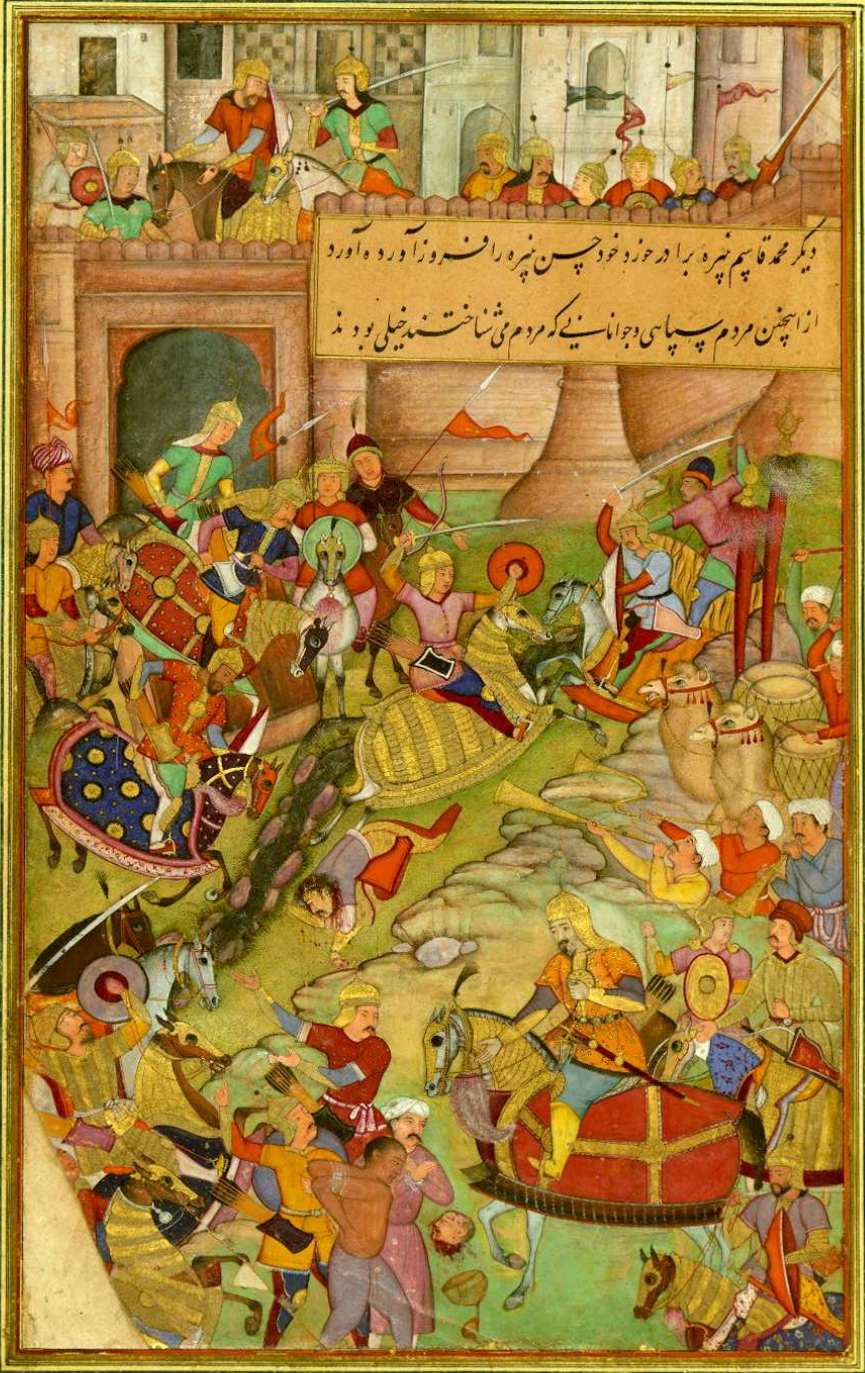 دیگر محمد قاسم نبیره برادر خورد خود حسن نبیره را فروز آورده آورد
از اینچنین مردم سپاهی و جوانانی که مردم می شناختند خیلی بودند